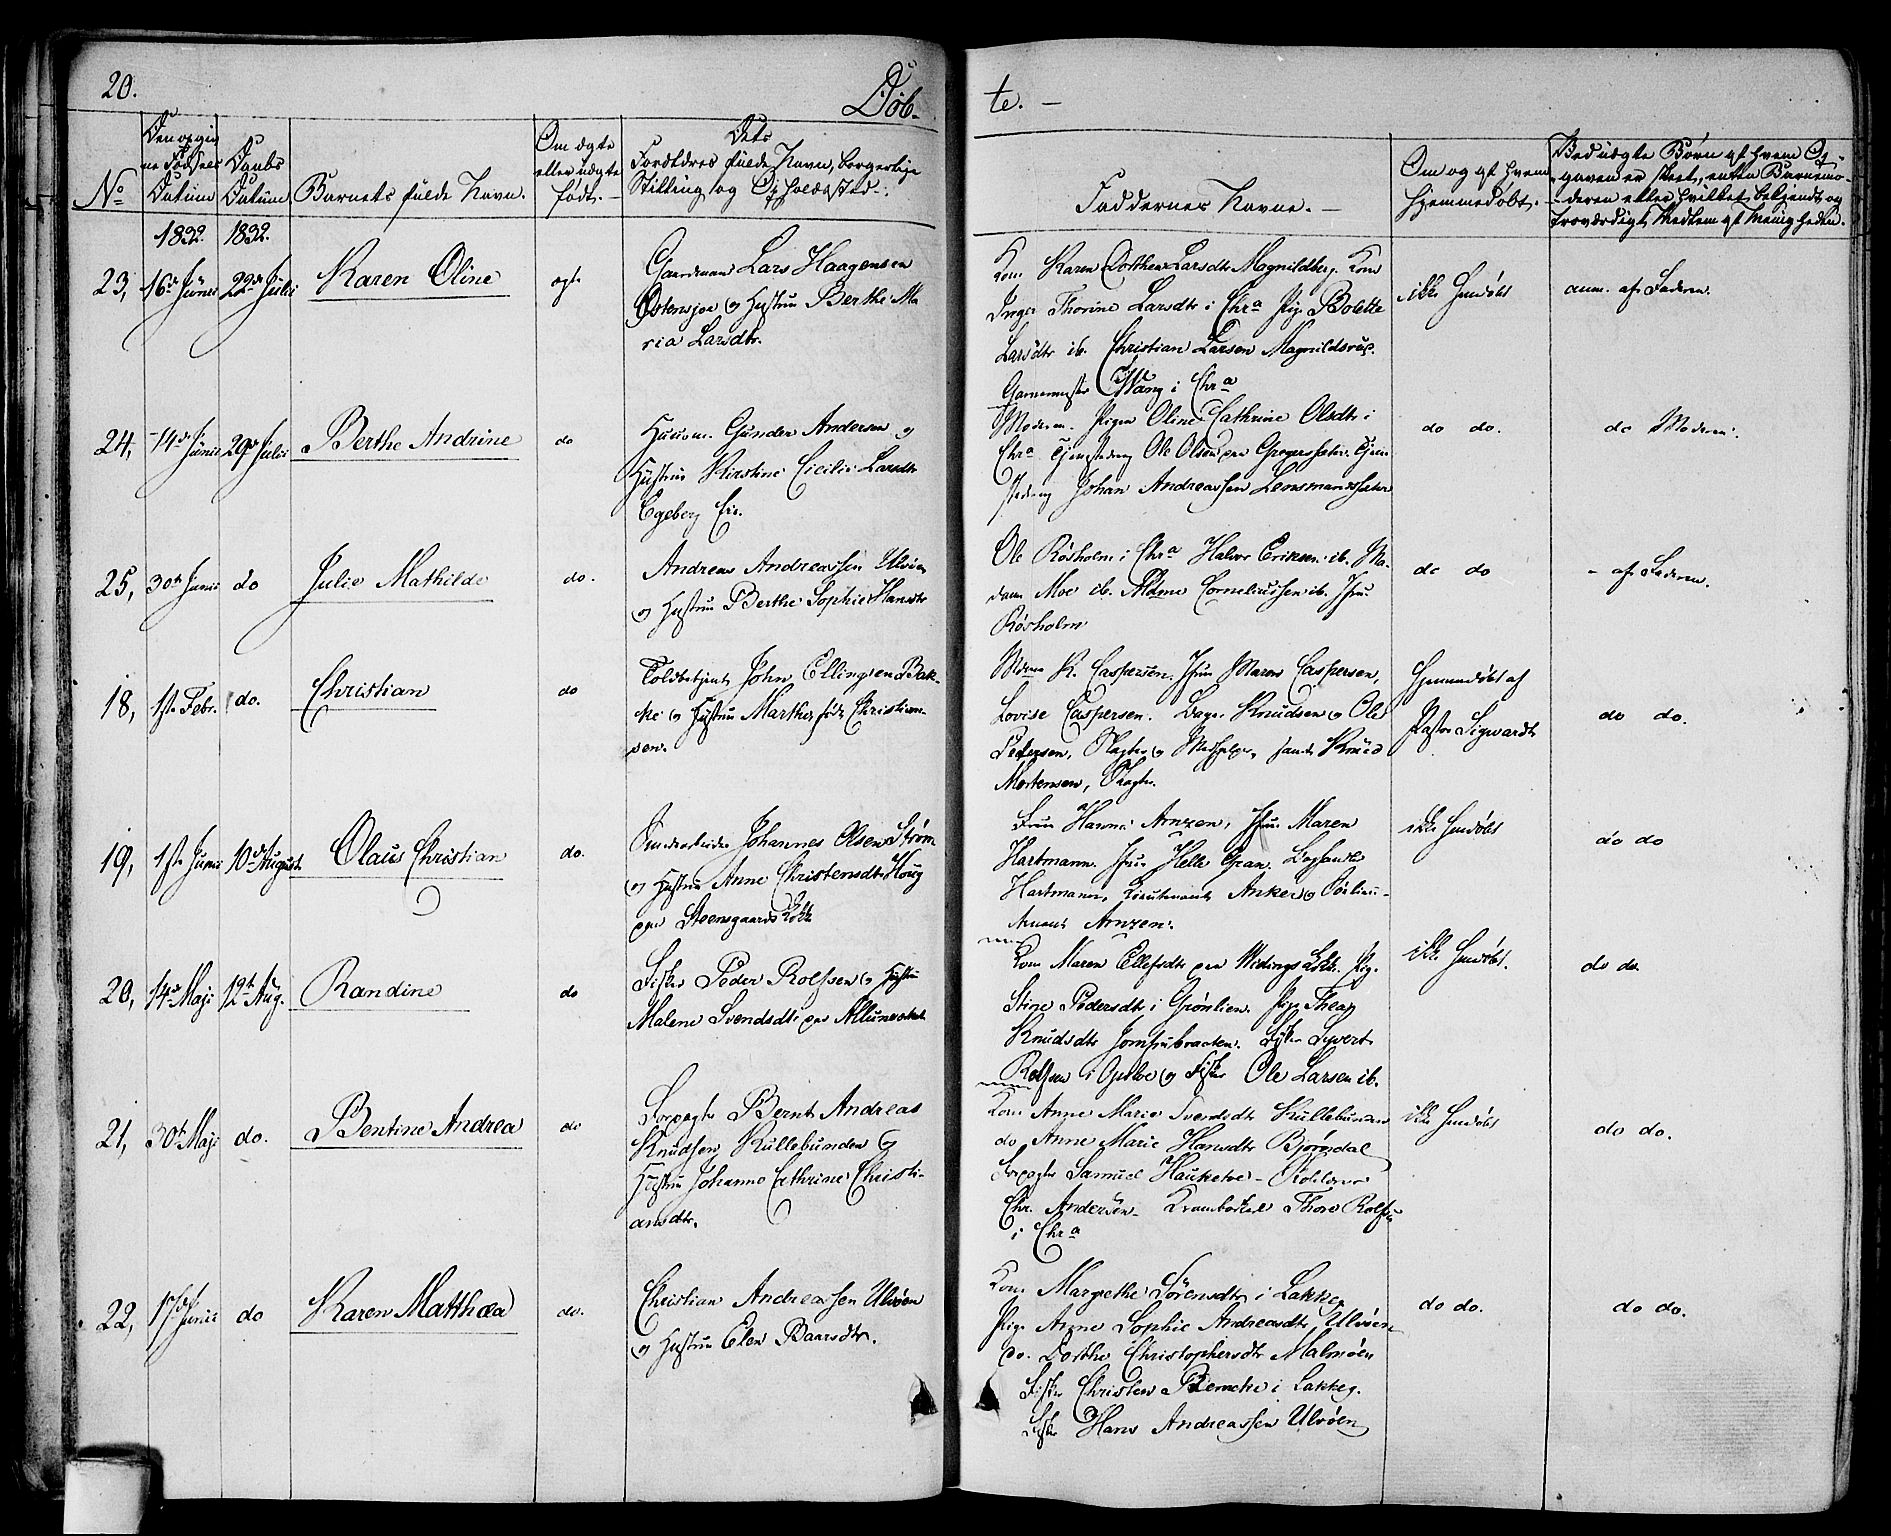 20.
Døb-
te. -
No
Den opgiv
ne Fødsels
Datum
Daabs
Datum
Barnets fulde Navn.
Om ægte
eller uægte
født.
Dets
Forældres fulde Navn, borgerlige
Stilling og Opholdssted.
Faddernes Navne. -
Om og af hvem
hjemmedøbt.
Ved uægte Børn af hvem Op-
gaven er skeet, enten Barnemo-
deren eller hvilket bekjendt og
troværdigt Medlem af Menigheden.
1832. 1832.
23, 16de Junii 22de Julii Karen Oline ægte
Gaardmand Lars Haagensen
Østensjøe og Hustrue Berthe Ma
ria Larsdtr.
Kone Karen Dorthea Larsdtr Magnildberg. Kone
Inger Thorine Larsdtr i Chra Pige Bolette
Larsdtr ib. Christian Larsen
Wang i Chra
ikke Hmdøbt
anm. af Faderen.
24, 14de Junii 29de Julii Berthe Andrine do
Huusm. Gunder Andersen og
Hustrue Kirstine Cicilie Larsdtr
Egeberg Eie.
Moderen. Pigen Oline Cathrine Olsdtr i
Chra Tjenestedreng Ole Olsen
Johan Andreassen
do do.
do Moderen.
25, 30te Junii do Julie Mathilde do.
Andreas Andreassen Ulvøen
og Hustrue Berthe Sophie Hansdtr
Ole Røsholm i Chra Halvor Eriksen ib. Ma-
dam Moe ib. Mdme Corneliussen ib. Jfru
Røsholm
do do
- af Faderen.
18, 1ste Febr. do. Christian do
Toldbetjent John Ellingsen Bak-
ke og Hustrue Marthe, født Christian-
sen.
Mdme K. Caspersen. Jfru Maren Caspersen,
Lovise Caspersen. Knudsen og Ole
Pedersen, samt Knud
Mortensen,
Hjemmedøbt af
Pastor Sigwardt
do do.
19, 1ste Junii 10de August Olaus Christian do.
Johannes Olsen Strøm
og Hustrue Anne Christensdtr Houg
paa Steensgaards Løkke
Frue Hanna Arnzen, Jfrue Maren
Hartmann. Jfrue Helle Gran.
Hartmann, Lieutenant Anker og
Arnzen.
ikke Hmdøbt
do do
20, 14de Maji 12te Aug. Randine do
Fisker Peder Rolfsen og Hustrue
Malene Svendsdtr paa
Kone Maren Ellefsdtr paa Løkke. Pige
Stine Pedersdtr i Grønlien. Pige Thea
Knudsdtr Jomfrubraaten. Fisker Syvert
Rolfsen i Opsloe og Fisker Ole Larsen ib.
ikke Hmdøbt.
do do.
21, 30te Maji do. Bentine Andrea do
Forpagter Bernt Andreas
Knudsen Kullebunden og
Hustrue Johanne Cathrine Christi-
ansdtr.
Kone Anne Marie Svendsdtr Kullebunden
do, Anne Marie Hansdtr Bjørndal
Forpagter Samuel Hauketoe -
Chr. Andersen - Thore Rolfsen
i Chra
ikke Hmdøbt
do do.
22, 17de Junii do Karen Matthæa do.
Christian Andreassen Ulvøen
og Hustrue Elen Baarsdtr.
Kone Margrethe Sørensdtr i Lakkeg.
Pige Anne Sophie Andreasdtr Ulvøen
do. Dorthe Christophersdtr Malmøen
Fisker Christen i Lakkeg.
Fisker Hans Andreassen Ulvøen
do do.
do do.